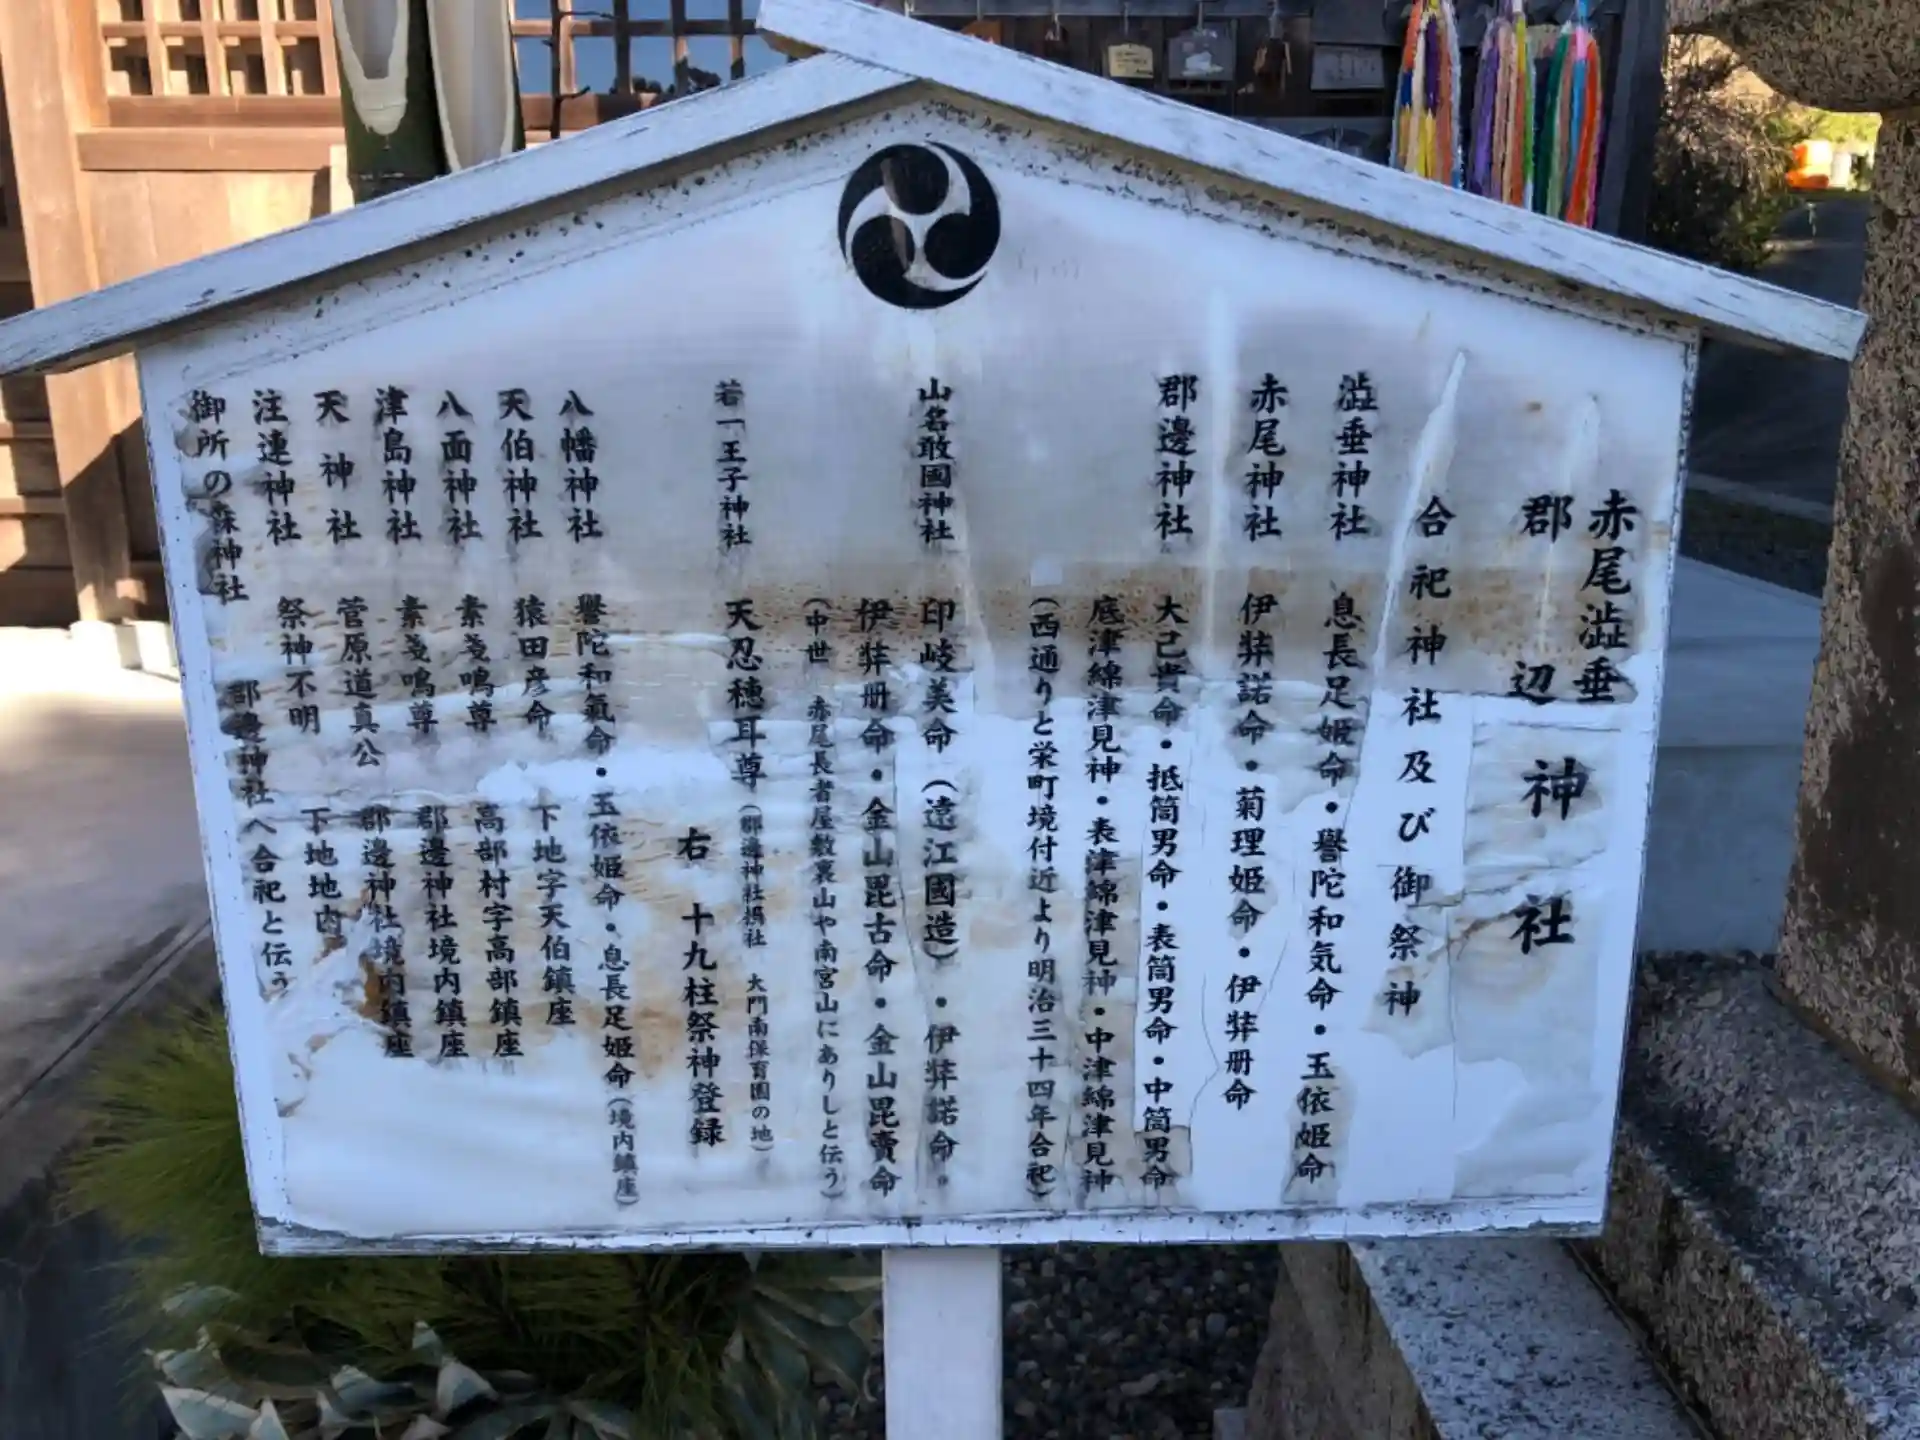 赤尾澁垂
郡辺神社
合祀神社及び御祭神
澁垂神社 息長足姫命・譽陀和気命・玉依姫命
赤尾神社 伊弉諾命・菊理姫命・伊弉册命
郡邊神社 大己貴命・抵筒男命・表筒男命・中筒男命
底津綿津見神・表津綿津見神・中津綿津見神
(西通りと栄町境付近より明治三十四年合祀)
山名敢國神社 印岐美命(遠江國造)・伊弉諾命・
伊弉册命・金山毘古命・金山毘賣命
(中世 赤尾長者屋敷裏山や南宮山にありしと伝う)
若一王子神社 天忍穂耳尊(郡邊神社摂社 大門南保育園の地)
右 十九柱祭神登録
八幡神社 譽陀和氣命・玉依姫命・息長足姫命(境内鎮座)
天伯神社 猿田彦命 下地字天伯鎮座
八面神社 素戔嗚尊 高部村字高部鎮座
津島神社 素戔嗚尊 郡邊神社境内鎮座
天神社 菅原道真公 郡邊神社境内鎮座
注連神社 祭神不明 下地地内
御所の森神社 郡邊神社へ合祀と伝う